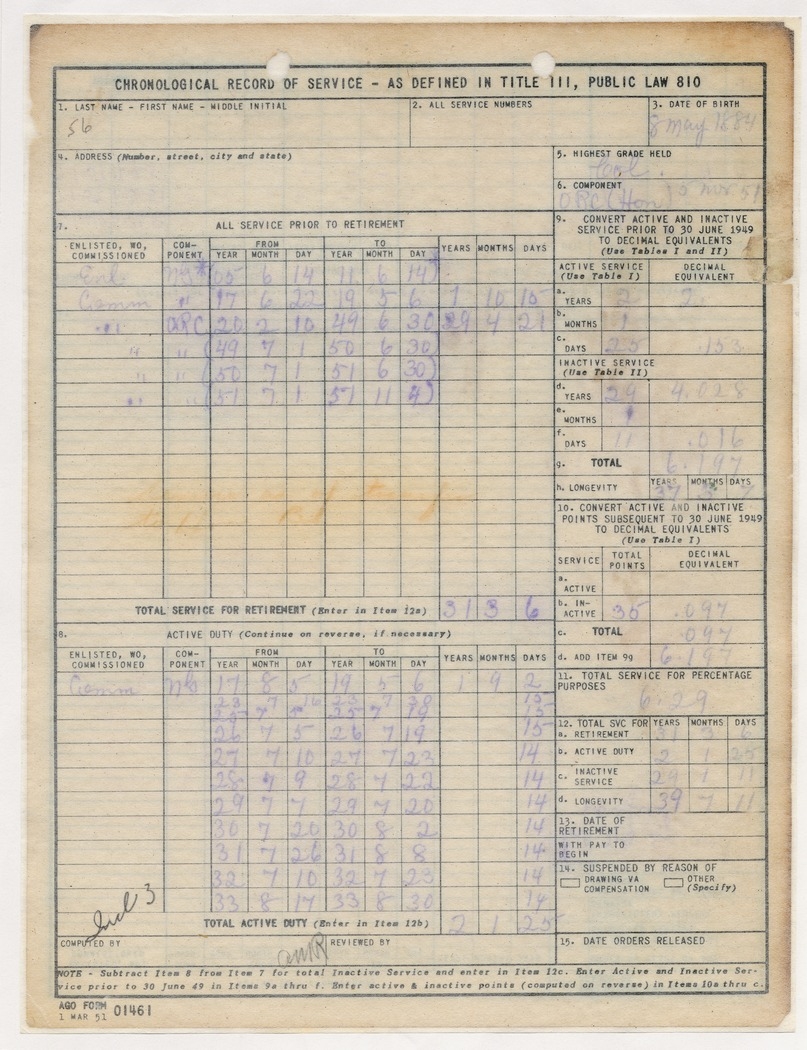 CHRONOLOGICAL RECORD OF SERVICE - AS DEFINED IN TITLE III, PUBLIC LAW 810
1. LAST NAME - FIRST NAME - MIDDLE INITIAL
56
2. ALL SERVICE NUMBERS
3. DATE OF BIRTH
8 May 1884
4. ADDRESS (Number, street, city and state)
5. HIGHEST GRADE HELD
Col.
6. COMPONENT
ORC (Hon) 5 Nov 51
7. ALL SERVICE PRIOR TO RETIREMENT
ENLISTED, WO, COMMISSIONED COM-PONENT FROM YEAR MONTH DAY TO YEAR MONTH DAY YEARS MONTHS DAYS
Enl. 05 6 14 11 6 14)
Comm " 17 6 22 19 5 6 1 10 15
" ORC 20 2 10 49 6 30 29 4 21
" " (49 7 1 50 6 30)
" " (50 7 1 51 6 30)
" " (51 7 1 51 11 4)
TOTAL SERVICE FOR RETIREMENT (Enter in Item 12a) 31 3 6
8. ACTIVE DUTY (Continue on reverse, if necessary)
ENLISTED, WO, COMMISSIONED COM-PONENT FROM YEAR MONTH DAY TO YEAR MONTH DAY YEARS MONTHS DAYS
Comm 17 8 5 19 5 6 1 9 2
23 7 16 23 7 15
25 7 25 7 19 15
26 7 5 26 7 19 15
27 7 10 27 7 23 14
28 7 9 28 7 22 14
29 7 7 29 7 20 14
30 7 20 30 8 2 14
31 7 26 31 8 8 14
32 7 10 32 7 23 14
33 8 17 33 8 30 14
Incl 3
TOTAL ACTIVE DUTY (Enter in Item 12b) 2 1 25
COMPUTED BY
REVIEWED BY
9. CONVERT ACTIVE AND INACTIVE
SERVICE PRIOR TO 30 JUNE 1949
TO DECIMAL EQUIVALENTS
(Use Tables I and II)
ACTIVE SERVICE (Use Table I) DECIMAL EQUIVALENT
a. YEARS 2 2.
b. MONTHS 1
c. DAYS 25 .153
INACTIVE SERVICE
(Use Table II)
d. YEARS 29 4.028
e. MONTHS 1
f. DAYS 11 .016
g. TOTAL 6.197
h. LONGEVITY YEARS MONTHS DAYS
37 3 7
10. CONVERT ACTIVE AND INACTIVE
POINTS SUBSEQUENT TO 30 JUNE 1949
TO DECIMAL EQUIVALENTS
(Use Table I)
SERVICE TOTAL POINTS DECIMAL EQUIVALENT
a. ACTIVE
b. IN-ACTIVE 35 .097
c. TOTAL .097
d. ADD ITEM 9g 6.197
11. TOTAL SERVICE FOR PERCENTAGE
PURPOSES
6.29
12. TOTAL SVC FOR YEARS MONTHS DAYS
a. RETIREMENT 31 3 6
b. ACTIVE DUTY 2 1 25
c. INACTIVE SERVICE 29 1 11
d. LONGEVITY 39 7 11
13. DATE OF
RETIREMENT
WITH PAY TO
BEGIN
14. SUSPENDED BY REASON OF
DRAWING VA COMPENSATION
OTHER (Specify)
15. DATE ORDERS RELEASED
NOTE - Subtract Item 8 from Item 7 for total Inactive Service and enter in Item 12c. Enter Active and Inactive Ser-
vice prior to 30 June 49 in Items 9a thru f. Enter active & inactive points (computed on reverse) in Items 10a thru c.
AGO FORM
1 MAR 51 01461